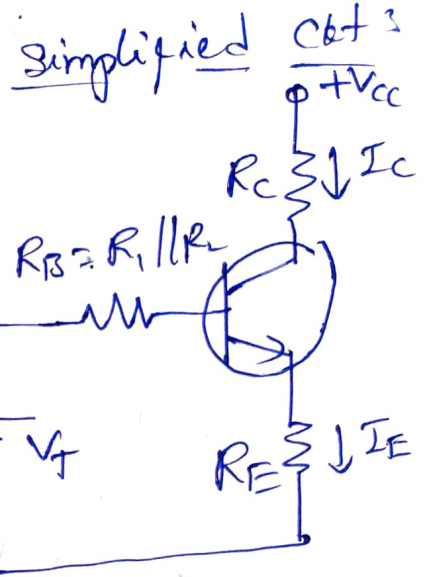 Simplified Ckt :
+VCC
RC ↓ IC
RB = R1 || R2
VT
RE ↓ IE